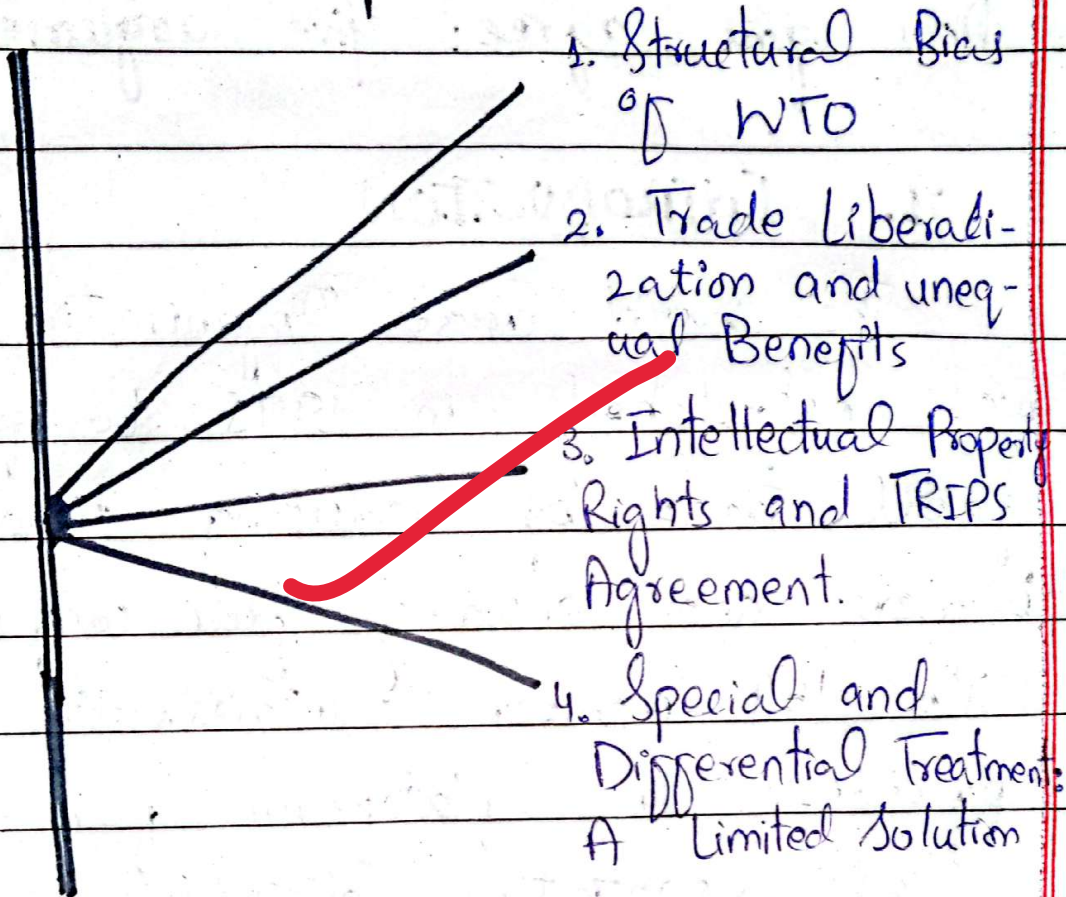 1. Structural Bias
of WTO
2. Trade Liberali-
zation and uneq-
ual Benefits
3. Intellectual Property
Rights and TRIPS
Agreement.
4. Special and
Differential Treatment:
A Limited Solution